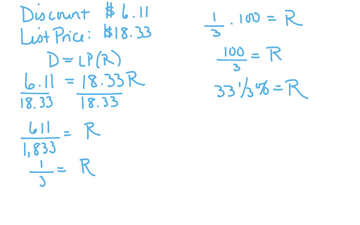 Discount $6.11
List Price: $18.33
D = LP(R)
6.11 = 18.33R
18.33 18.33
611 = R
1,833
1/3 = R
1/3 · 100 = R
100/3 = R
33 1/3 % = R